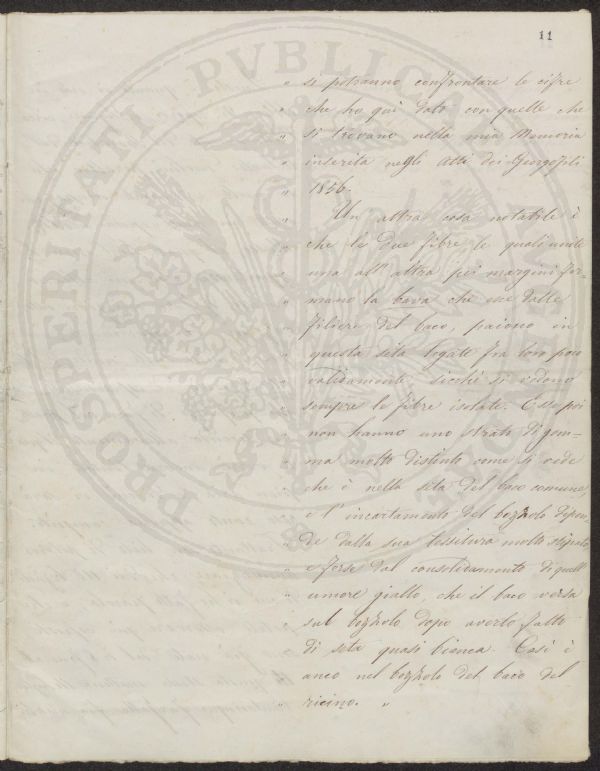 11
" si potranno confrontare le cifre
" che ho qui dato con quelle che
" si trovano nella mia Memoria
" inserita negli Atti dei Georgofili
" 1856.
" Un altra cosa notabile è
" che le due fibre le quali unite
" una all'altra pei margini for-
" mano la bava che esce dalle
" filiere del baco, paiono in
" questa seta legate fra loro poco
" validamente, sicchè si vedono
" sempre le fibre isolate. Esse poi
" non hanno uno strato di gom-
" ma molto distinto come si vede
" che è nella seta del baco comune,
" e l'incartamento del bozzolo dipen
" de dalla sua tessitura molto stipata,
" e forse dal consolidamento di quell
" umore giallo, che il baco versa
" sul bozzolo dopo averlo fatto
" di seta quasi bianca. Così è
" anco nel bozzolo del baco del
" ricino. "
PROSPERITATI PVBLICAE